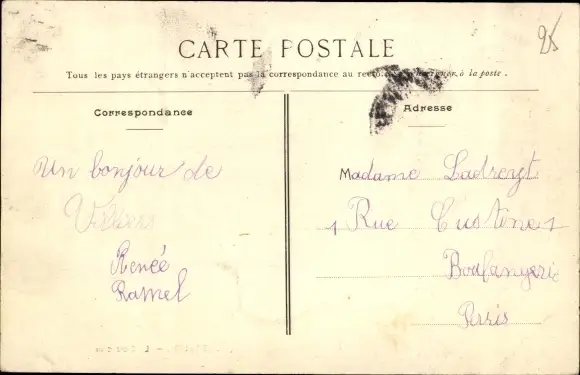 25
CARTE POSTALE
Tous les pays étrangers n'acceptent pas la correspondance au recto à la poste.
Correspondance
Adresse
Un bonjour de
Villiers
Renée
Ramel
Madame
1 Rue Custine 1
Boulangerie
Paris